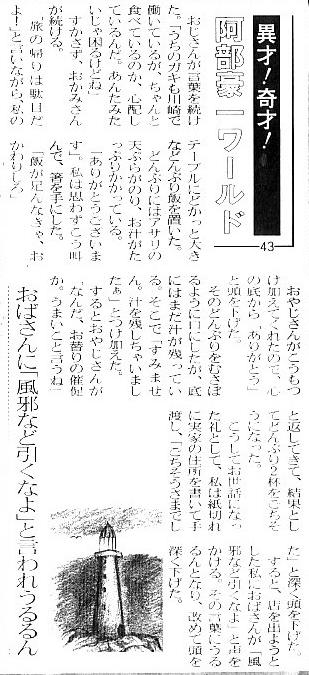 異才!奇才!
阿部豪一ワールド
43
おじさんが言葉を続け
た。「うちのガキも川崎で
働いているが、ちゃんと
食べているのか、心配し
ているんだ。あんたみた
いじゃ困るけどね」
すかさず、おかみさん
が続ける。
「旅の帰りは駄目だ
よ!」と言いながら、私の
テーブルにどかっと大き
などんぶり飯を置いた。
どんぶりにはアサリの
天ぷらがのり、お汁がた
っぷりかかっている。
「ありがとうございま
す」。私は思わずこう叫
んで、箸を手にした。
「飯が足んなきゃ、お
かわりしろ」
おやじさんがこうもつ
け加えてくれたので、心
の底から「ありがとう」
と頭を下げた。
そのどんぶりをむさぼ
るように口にしたが、底
にはまだ汁が残ってい
る。そこで「すみませ
ん。汁を残しちゃいまし
たぁ」とつけ加えた。
するとおやじさんが
「なんだ、お替りの催促
か。うまいこと言うね」
と返してきて、結果とし
てどんぶり2杯をごちそ
うになった。
こうしてお世話になっ
た礼として、私は紙切れ
に実家の住所を書いて手
渡し、「ごちそうさまでし
た」と深く頭を下げた。
すると、店を出ようと
した私におばさんが「風
邪など引くなよ」と声を
かける。その言葉にうる
るんとなり、改めて頭を
深く下げた。
おばさんに「風邪など引くなよ」と言われうるるん